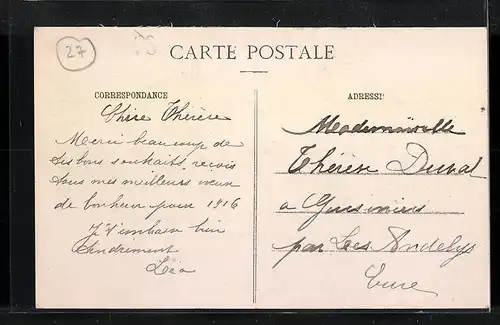 27
CARTE POSTALE
CORRESPONDANCE
ADRESSE
Chère Thérèse
Merci beaucoup de
tes bons souhaits, reçois
tous mes meilleurs vœux
de bonheur pour 1916
Je t'embrasse bien
tendrement
Léa
Mademoiselle
Thérèse Duval
a
par Les Andelys
Eure